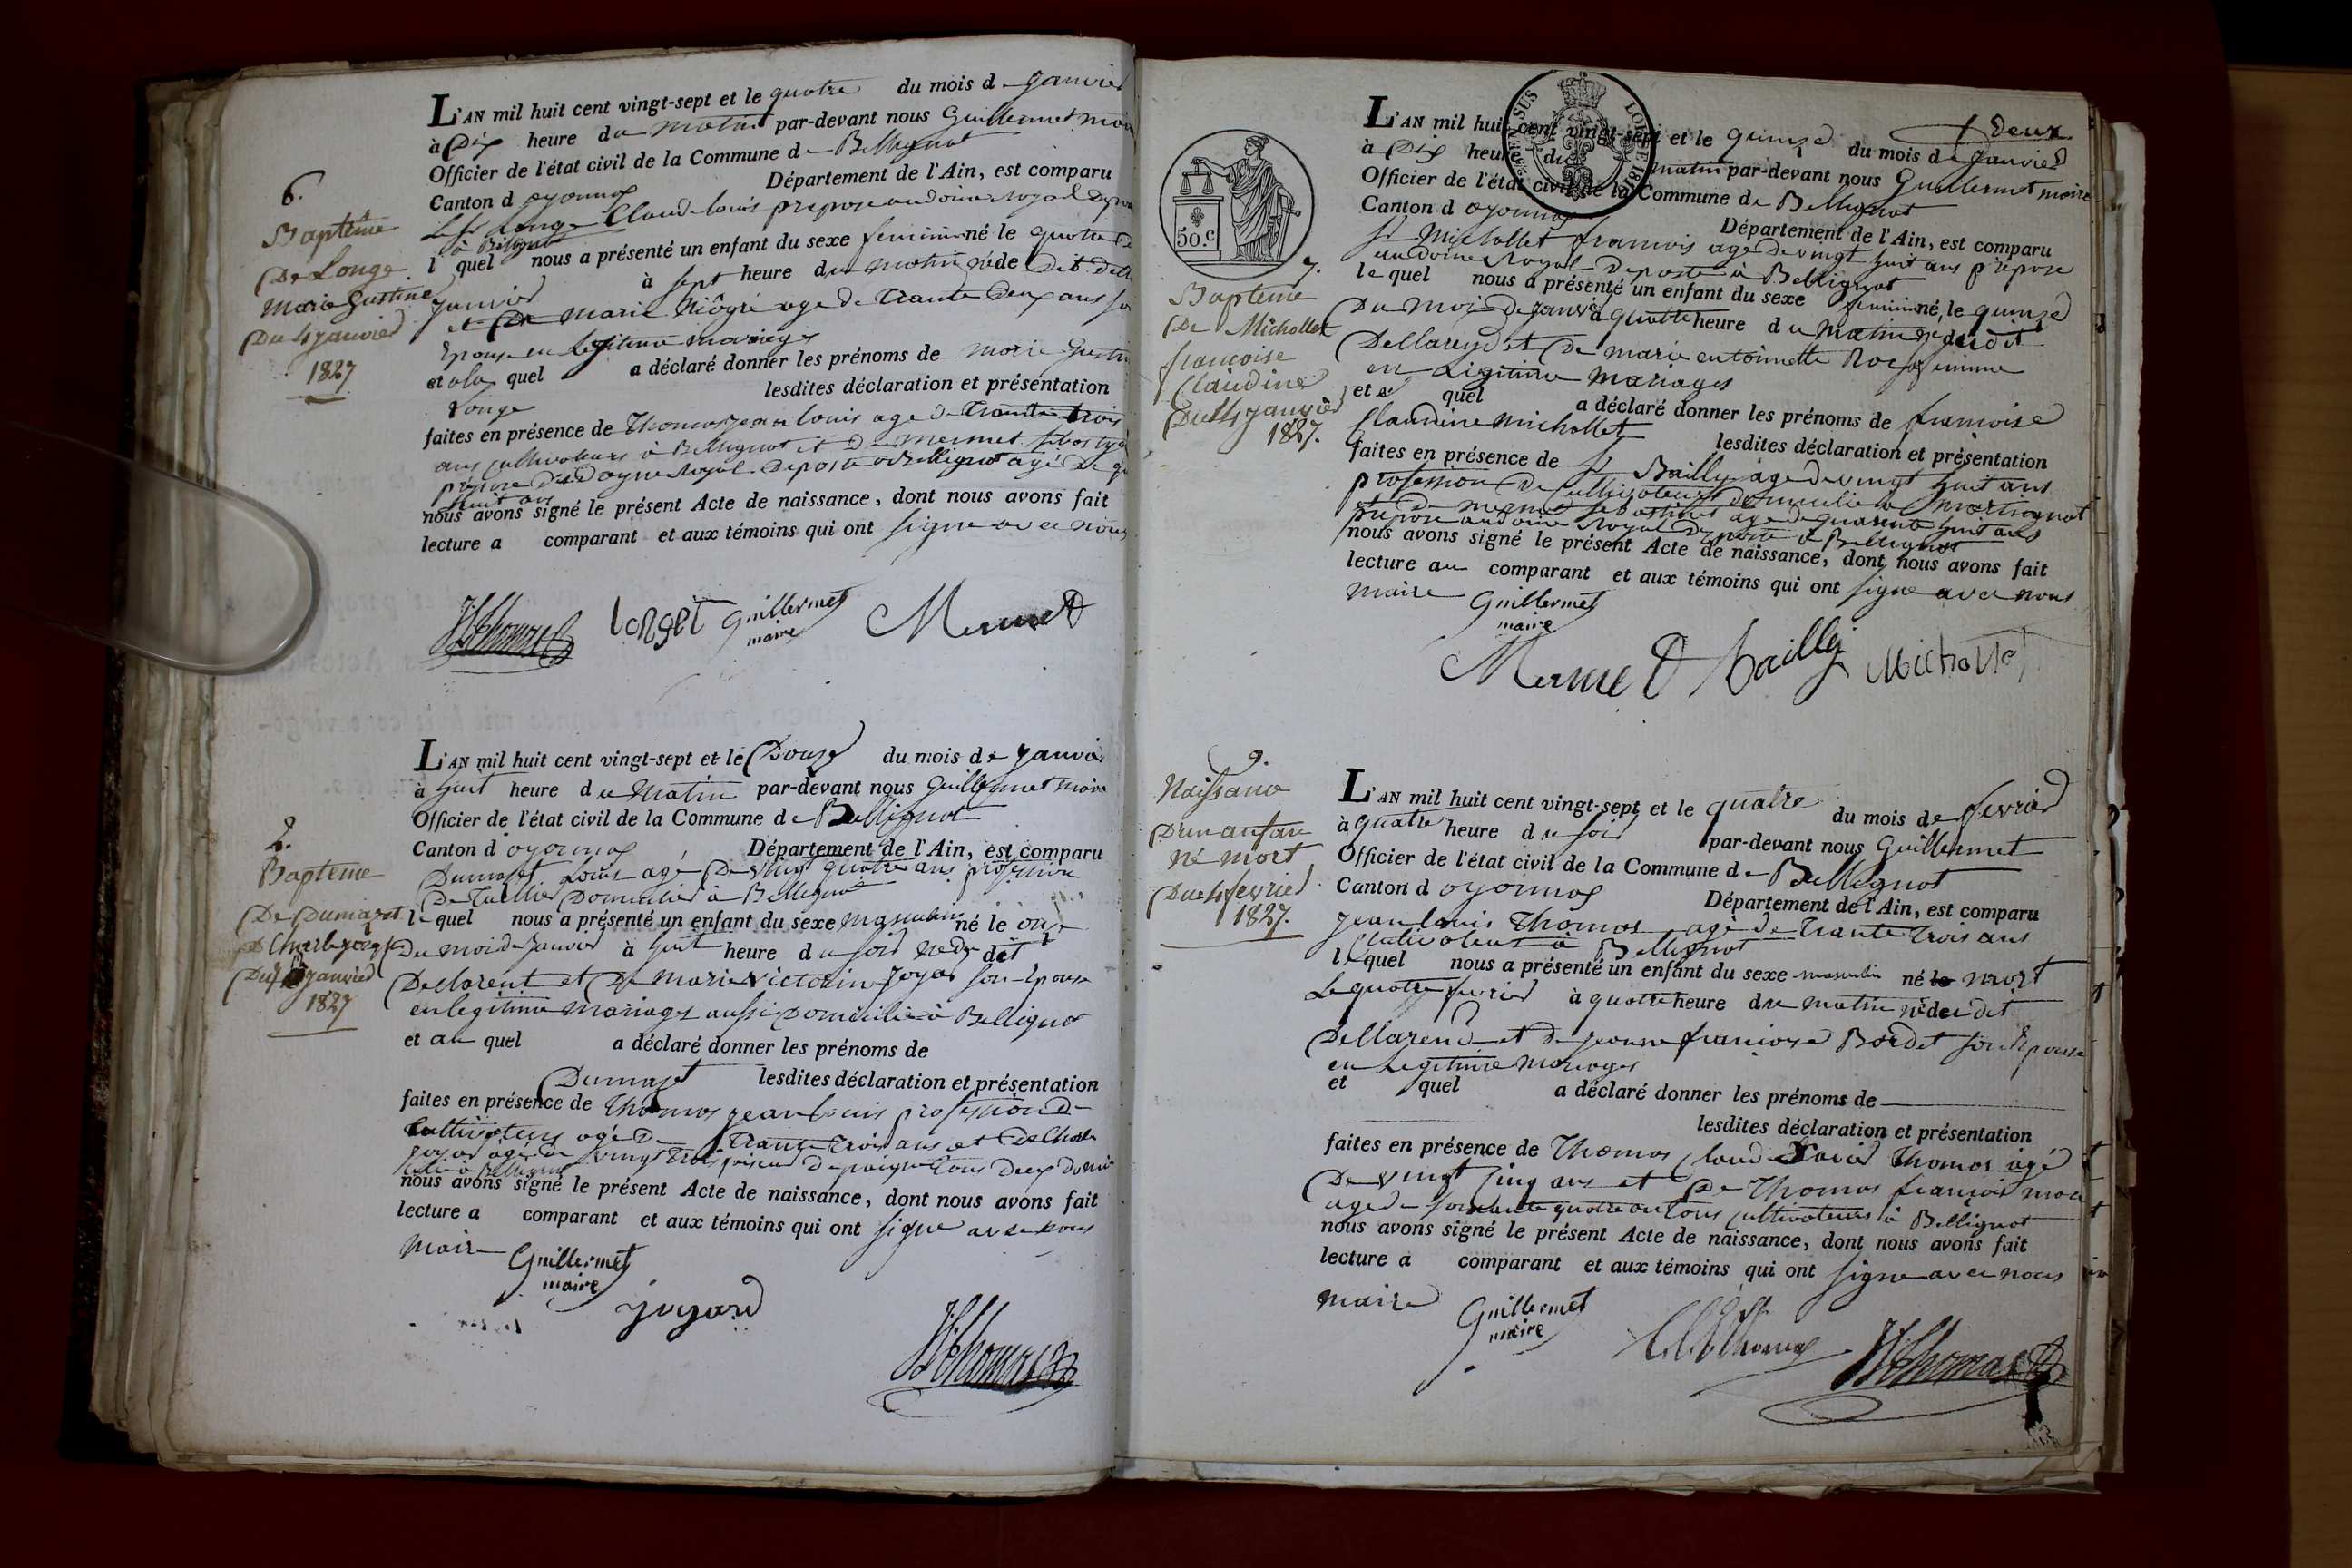 6.
Baptême
De Longe
Marie Justine
Du 4 janvier
1827
L'AN mil huit cent vingt-sept et le quatre du mois d janvier
à Dix heure du matin par-devant nous Guillermet
Officier de l'état civil de la Commune de Bellignat
Canton d oyonnax Département de l'Ain, est comparu
Longe Claude louis prepose au doine royal
à Bellignat
l quel nous a présenté un enfant du sexe feminin né le quatre
janvier à sept heure du matin né de dit
et De Marie age de Trante Deux ans
Epouse en Legitime mariage
et a la quel a déclaré donner les prénoms de marie
Longe lesdites déclaration et présentation
faites en présence de Thomas jean louis age de Trante trois
ans cultivateurs à Bellignat et De mermet
prepose Doyne Royal Deposte a Bellignat agé De
huit ans
nous avons signé le présent Acte de naissance, dont nous avons fait
lecture a comparant et aux témoins qui ont signe avec nous
Thomas Longet Guillermet Mermet
maire
2.
Bapteme
De Dumaset
Du janvier
1827
L'AN mil huit cent vingt-sept et le Douze du mois de janvier
à huit heure du Matin par-devant nous Guillermet maire
Officier de l'état civil de la Commune de Bellignat
Canton d oyonnax Département de l'Ain, est comparu
Dumaset Louis agé De vingt quatre ans profession
De Domicilié à Bellignat
le quel nous a présenté un enfant du sexe masculin né le onze
Du moi de Janvier à huit heure du soir né du dit
Declarent et De marie victorine joyar son Epouse
en legitime mariage aussi Domicilié à Bellignat
et au quel a déclaré donner les prénoms de
Dumaset lesdites déclaration et présentation
faites en présence de Thomas jean louis profession de
Cultivateurs agé De Trante Trois ans et De
joyar agé de vingt Trois De paigne tous Deux
à Bellignat
nous avons signé le présent Acte de naissance, dont nous avons fait
lecture a comparant et aux témoins qui ont signe avec nous
Maire Guillermet
maire
joyard
Thomas
Deux
50.C
LOI DE 1816
7.
Bapteme
De Michollet
francoise
Claudine
Du janvier
1827.
L'AN mil huit cent vingt-sept et le quinze du mois de Janvier
à Dix heure du matin par-devant nous Guillermet maire
Officier de l'état civil de la Commune de Bellignat
Canton d oyonnax Département de l'Ain, est comparu
Sr Michollet francois age De vingt huit ans prepose
au doine Royal Deposte à Bellignat
le quel nous a présenté un enfant du sexe feminin né, le quinze
Du moi de Janvier à quatre heure du Matin né du dit
Dellarend et De marie entoinette femme
en Legitime Mariages
et a quel a déclaré donner les prénoms de francoise
Claudine Michollet lesdites déclaration et présentation
faites en présence de Sr Bailly age de vingt huit ans
profession De Cultivateurs Domicilié a Martignat
et De mermet age de quarante huit ans
prepose au doine Royal Deposte a Bellignat
nous avons signé le présent Acte de naissance, dont nous avons fait
lecture au comparant et aux témoins qui ont signe avec nous
maire Guillermet
maire
Mermet Bailly Michollet
9.
Naissance
D'un anfan
né mort
Du 4 fevrier
1827.
L'AN mil huit cent vingt-sept et le quatre du mois de fevrier
à quatre heure du soir par-devant nous Guillermet
Officier de l'état civil de la Commune de Bellignat
Canton d oyonnax Département de l'Ain, est comparu
jean louis Thomas agé de Trante Trois ans
Cultivateur à Bellignat
le quel nous a présenté un enfant du sexe masculin né le mort
Le quatre fevrier à quatre heure du matin né de dit
Dellarend et De jeanne francoise Bordet son Epouse
en Legitime Mariages
et quel a déclaré donner les prénoms de
lesdites déclaration et présentation
faites en présence de Thomas Claude Xavier Thomas agé
De vingt Cinq ans et De Thomas françois
age de soixante quatre an tous cultivateurs à Bellignat
nous avons signé le présent Acte de naissance, dont nous avons fait
lecture a comparant et aux témoins qui ont signe avec nous
maire Guillermet
maire
Thomas Thomas